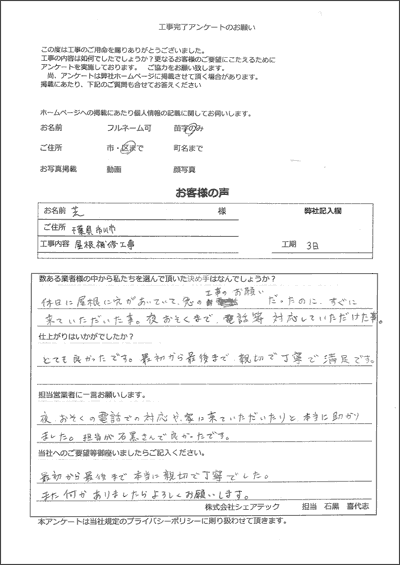 工事完了アンケートのお願い
この度は工事のご用命を賜りありがとうございました。
工事の内容は如何でしたでしょうか?更なるお客様のご要望にこたえるために
アンケートを実施しております。 ご協力をお願い致します。
尚、アンケートは弊社ホームページに掲載させて頂く場合があります。
掲載にあたり、下記のご質問も合せてお答えください
ホームページへの掲載にあたり個人情報の記載に関してお伺いします。
お名前 フルネーム可 苗字のみ
ご住所 市・区まで 町名まで
お写真掲載 動画 顔写真
お客様の声
お名前 芝 様 弊社記入欄
ご住所 千葉県市川市
工事内容 屋根補修工事 工期 3日
数ある業者様の中から私たちを選んで頂いた決め手はなんでしょうか?
工事のお願い
休日に屋根に穴があいていて、急の だったのに、すぐに
来ていただいた事。夜おそくまで、電話等 対応していただけた事。
仕上がりはいかがでしたか?
とても良かったです。最初から最後まで、親切で丁寧で満足です。
担当営業者に一言お願いします。
夜おそくの電話での対応や、家に来ていただいたりと本当に助かり
ました。担当が石黒さんで良かったです。
当社へのご要望等御座いましたらご記入ください。
最初から最後まで本当に親切で丁寧でした。
また何かありましたらよろしくお願いします。
株式会社シェアテック 担当 石黒 喜代志
本アンケートは当社規定のプライバシーポリシーに則り扱わせて頂きます。